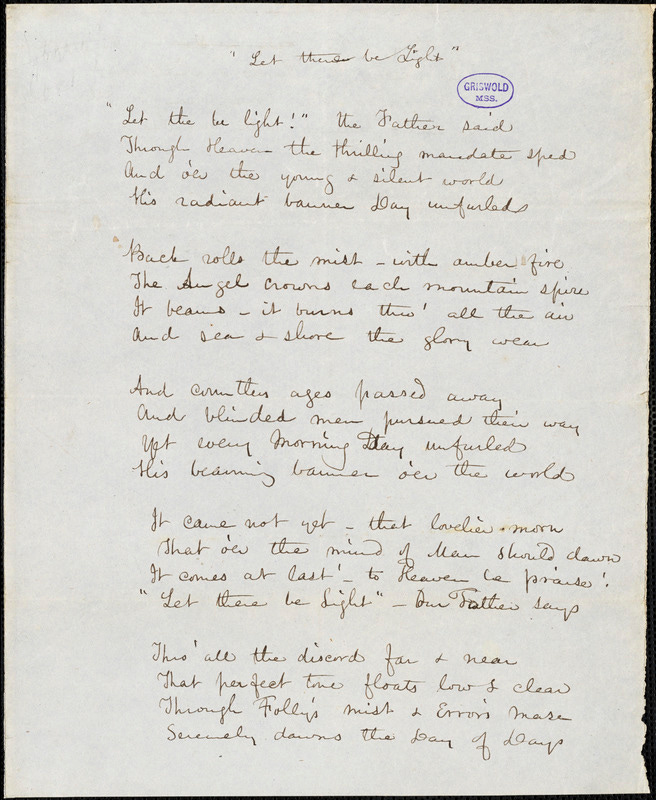 "Let there be Light"
GRISWOLD
MSS.
"Let the be light!" the Father said
Through Heaven the thrilling mandate sped
And o'er the young & silent world
His radiant banner Day unfurled

Back rolls the mist – with amber fire
The Angel crowns each mountain spire
It beams – it burns thro' all the air
And sea & shore the glory wear

And countless ages passed away
And blinded men pursued their way
Yet every Morning Day unfurled
His beaming banner o'er the world

It came not yet – that lovelier morn
That o'er the mind of Man should dawn
It comes at last! – to Heaven be praise!
"Let there be Light" – Our Father says

Thro' all the discord far & near
That perfect tone floats low & clear
Through Folly's mist & Error's maze
Serenely dawns the Day of Days